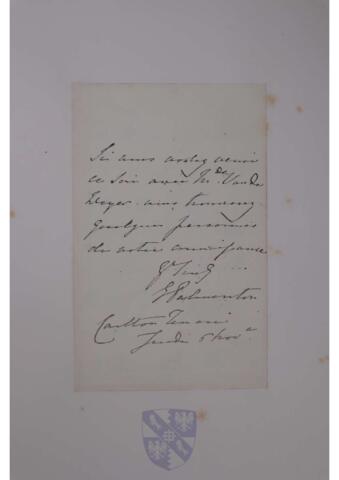 Si vous voulez venir
ce soir avec Mde Van de
Weyer vous trouverez
quelques personnes
de votre connoissance
E Palmerston
Carlton Terrace
5 Nov